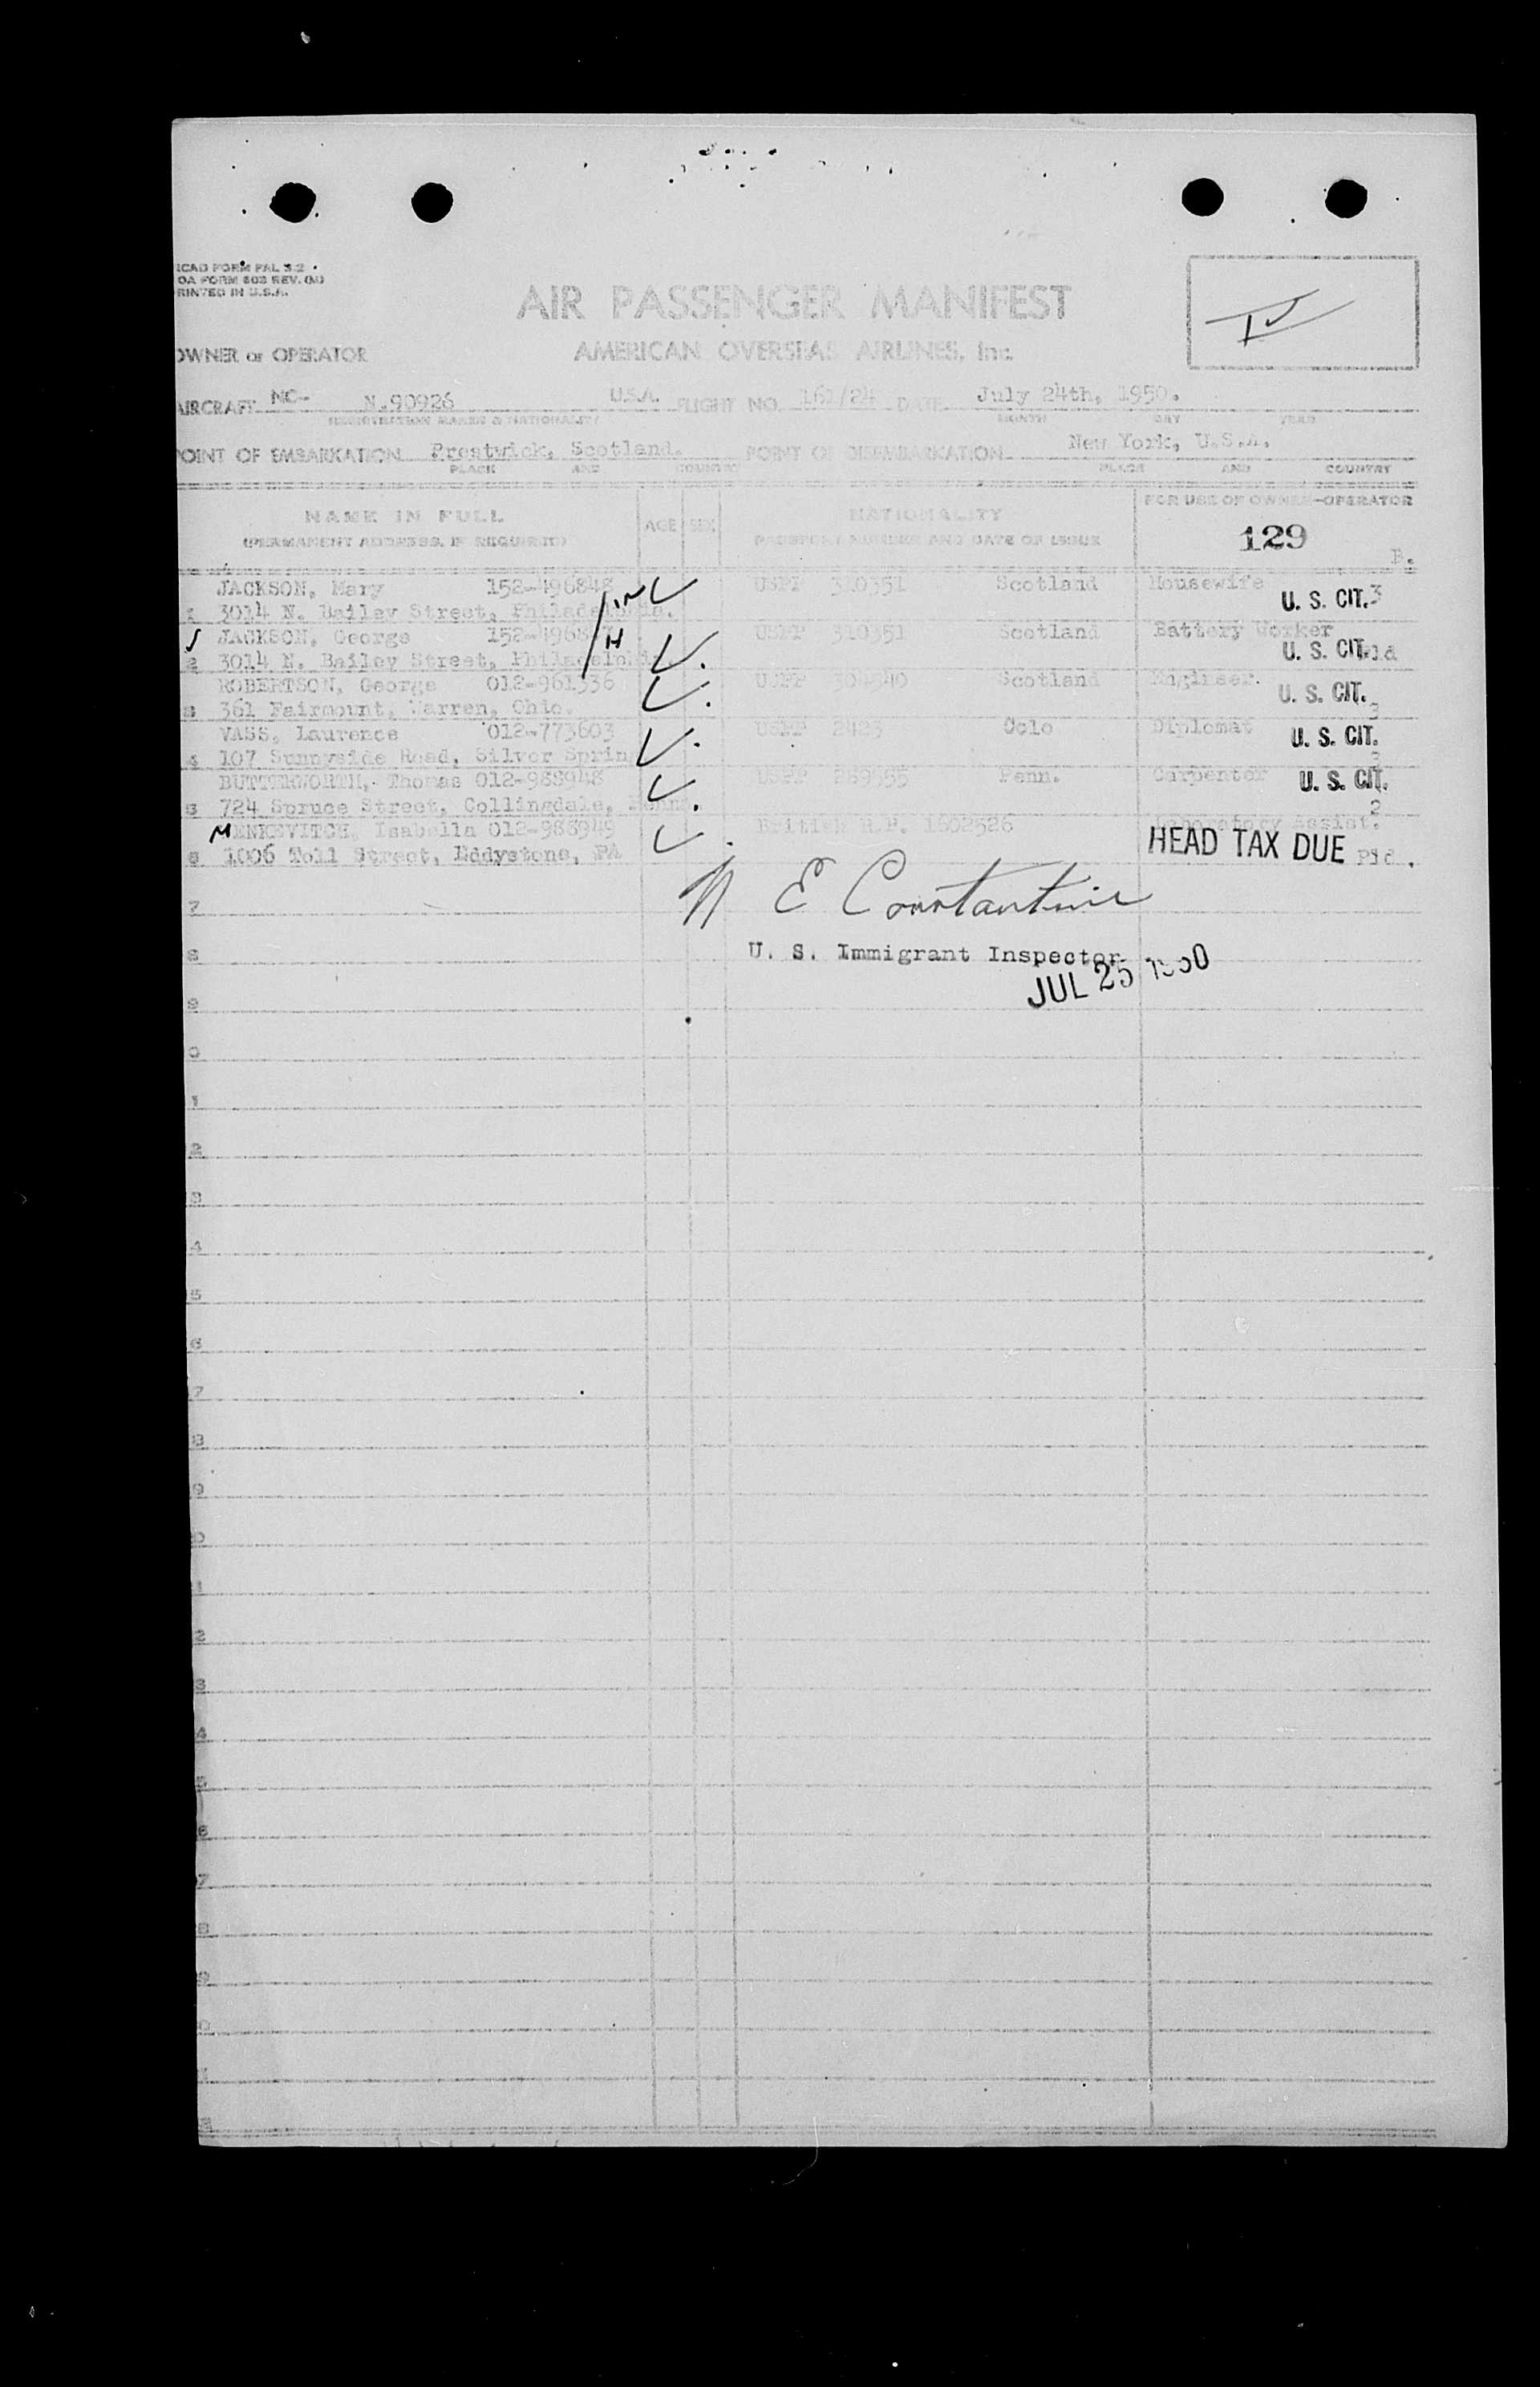 ICAO FORM PAL 3.2
OA FORM 803 REV.
RINTED IN U.S.A.
AIR PASSENGER MANIFEST
OWNER or OPERATOR AMERICAN OVERSEAS AIRLINES, Inc.
AIRCRAFT NC- N.90926 U.S.A. FLIGHT NO. 161/24 DATE July 24th, 1950.
REGISTRATION MARKS & NATIONALITY MONTH DAY YEAR
POINT OF EMBARKATION Prestwick, Scotland. POINT OF DISEMBARKATION New York, U.S.A.
PLACE AND COUNTRY PLACE AND COUNTRY
NAME IN FULL AGE SEX NATIONALITY FOR USE OF OWNER-OPERATOR
(PERMANENT ADDRESS, IF REQUIRED) PASSPORT NUMBER AND DATE OF ISSUE 129
B.
JACKSON, Mary 152-496848 USPP 310351 Scotland Housewife U. S. CIT. 3
1 3014 N. Bailey Street, Philadelphia.
JACKSON, George USPP 310351 Scotland Battery Worker
2 3014 N. Bailey Street, Philadelphia U. S. CIT.
ROBERTSON, George 012-961336 USPP Scotland Engineer. U. S. CIT.
3 361 Fairmount, Warren, Ohio. 3
VASS, Laurence 012-773603 USPP 2423 Oslo Diplomat U. S. CIT.
4 107 Sunnyside Road, Silver Sprin 3
BUTTERWORTH, Thomas 012-988948 USPP 289555 Penn. Carpenter U. S. CIT.
5 724 Spruce Street, Collingdale, Penn. 2
MENKEVITCH, Isabella 012-988949 British R.P. Laboratory Assist.
6 1006 Toll Street, Eddystone, PA HEAD TAX DUE
7 N E Constantine
8 U. S. Immigrant Inspector
JUL 25 1950
9
0
1
2
3
4
5
6
7
8
9
0
1
2
3
4
5
6
7
8
9
0
1
2